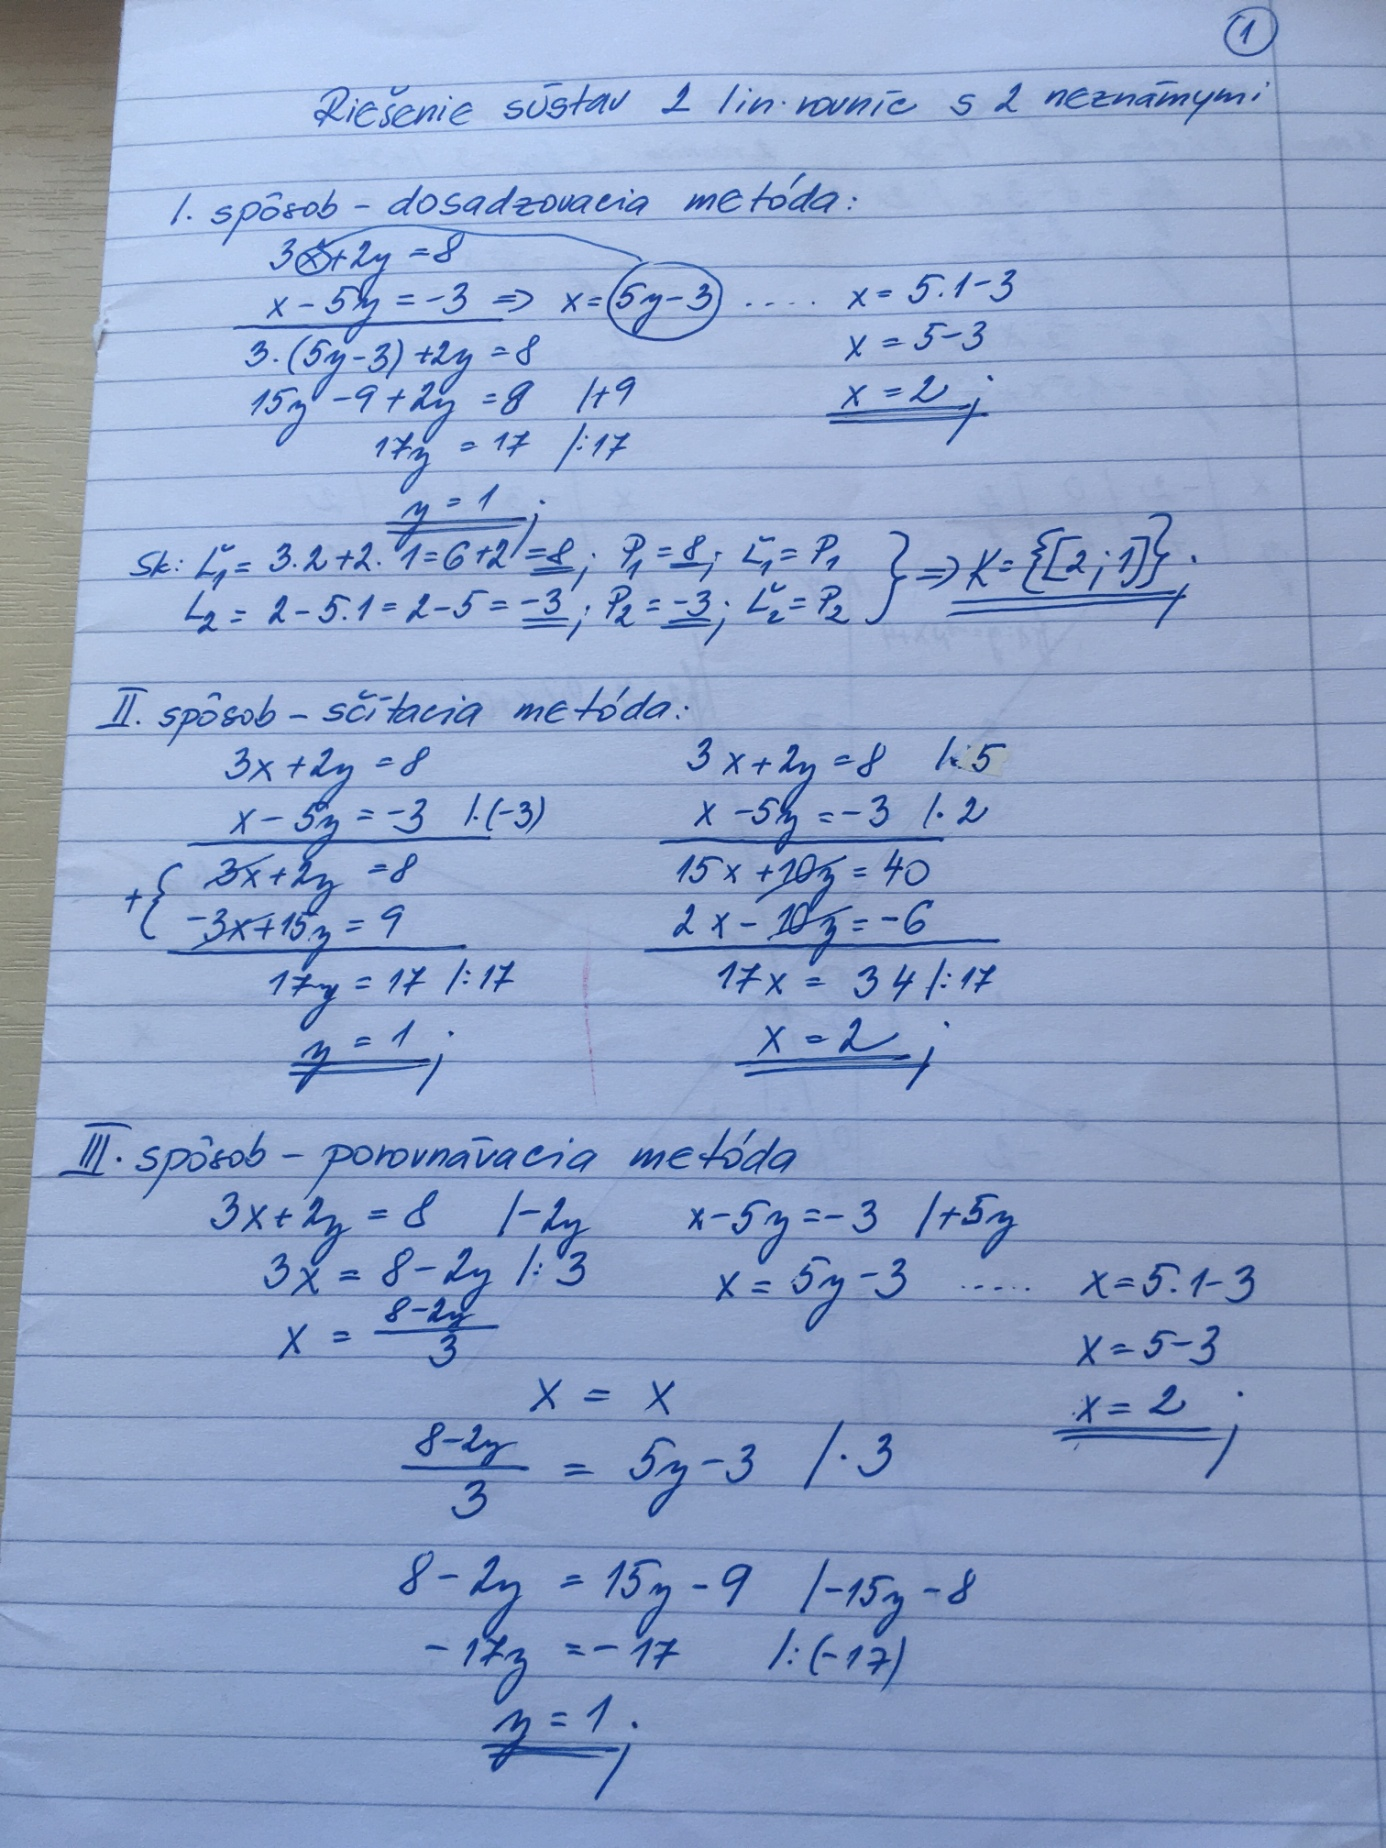 1
Riešenie sústav 2 lin. rovníc s 2 neznámymi
I. spôsob – dosadzovacia metóda:
3x+2y=8
x-5y=-3 => x=5y-3 .... x=5.1-3
3.(5y-3)+2y=8 x=5-3
15y-9+2y=8 /+9 x=2;
17y=17 /:17
y=1;
Sk: Ľ1=3.2+2.1=6+2=8; P1=8; Ľ1=P1
L2=2-5.1=2-5=-3; P2=-3; Ľ2=P2 } => K={[2;1]};
II. spôsob – sčítacia metóda:
3x+2y=8 3x+2y=8 /.5
x-5y=-3 /.(-3) x-5y=-3 /.2
+{ 3x+2y=8 15x+10y=40
-3x+15y=9 2x-10y=-6
17y=17 /:17 17x=34 /:17
y=1; x=2;
III. spôsob – porovnávacia metóda
3x+2y=8 /-2y x-5y=-3 /+5y
3x=8-2y /:3 x=5y-3 ..... x=5.1-3
x=8-2y/3 x=5-3
x=x x=2;
8-2y/3=5y-3 /.3
8-2y=15y-9 /-15y-8
-17y=-17 /:(-17)
y=1;